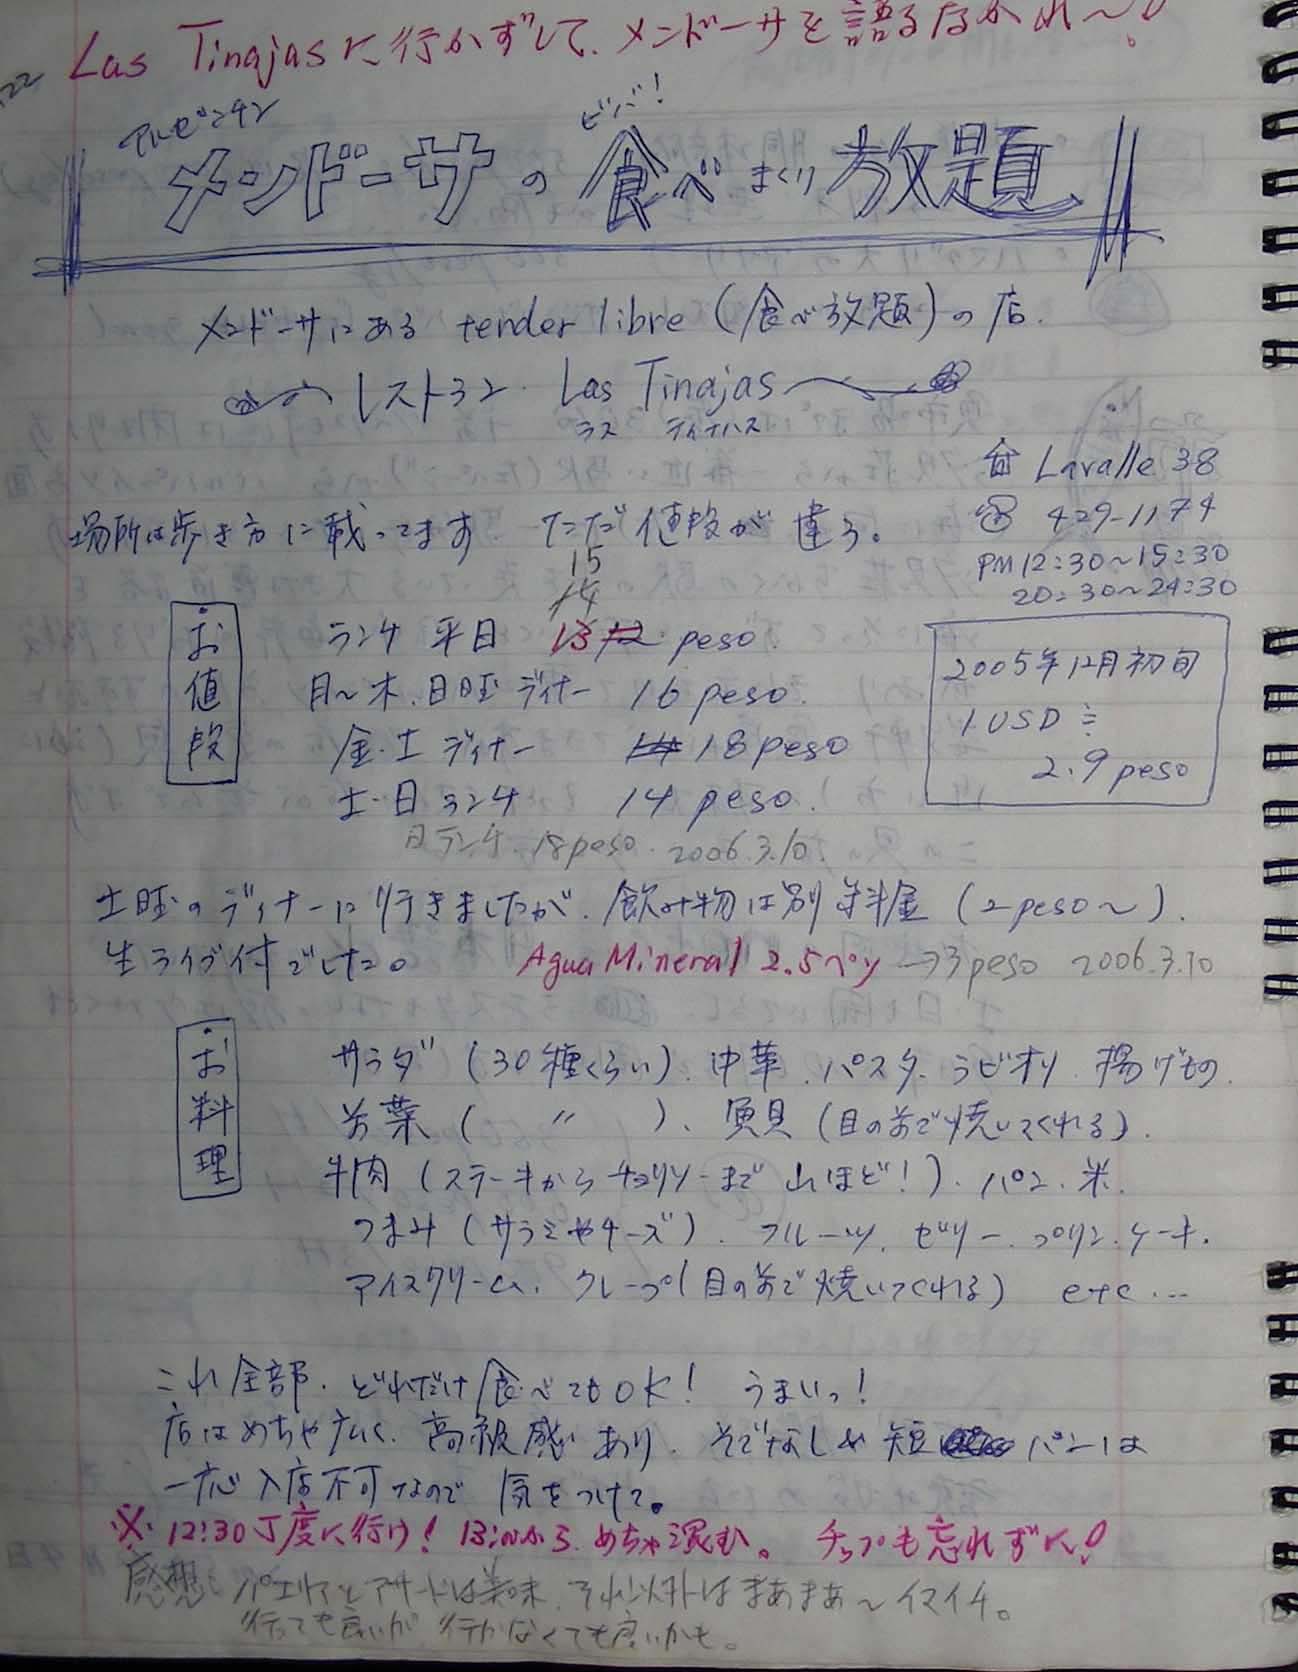 Las Tinajasに行かずして、メンドーサを語るなかれ〜!
アルゼンチン
ビバ!
メンドーサの食べまくり放題
メンドーサにある tender libre (食べ放題)の店.
レストラン Las Tinajas
ラス ティナハス
Lavalle 38
場所は歩き方に載ってます ただ値段が違う。
429-1174
PM 12:30〜15:30
20:30〜24:30
お値段
15
14
ランチ 平日 13 12 peso.
月〜木、日曜ディナー 16 peso.
金・土ディナー 18 peso
土・日ランチ 14 peso.
日ランチ 18peso. 2006.3.10.
2005年12月初旬
1USD≒
2.9 peso
土曜のディナーに行きましたが、飲み物は別料金 (2peso〜).
生ライブ付でした。 Agua Mineral 2.5ペソ →3peso 2006.3.10
お料理
サラダ (30種くらい)、中華、パスタ、ラビオリ、揚げもの.
前菜 ( 〃 )、魚貝 (目の前で焼いてくれる).
牛肉 (ステーキからチョリソーまで 山ほど!)、パン、米.
つまみ (サラミやチーズ)、フルーツ、ゼリー、プリン、ケーキ.
アイスクリーム、クレープ(目の前で焼いてくれる) etc...
これ全部、どれだけ食べてもOK! うまいっ!
店はめちゃ広く、高級感あり、そでなしや短パンは
一応入店不可なので 気をつけて。
※ 12:30丁度に行け! 13:00から、めちゃ混む。 チップも忘れずに!
感想: パエリアとアサードは美味、それ以外はまあまあ〜イマイチ。
行っても良いが 行かなくても良いかも。